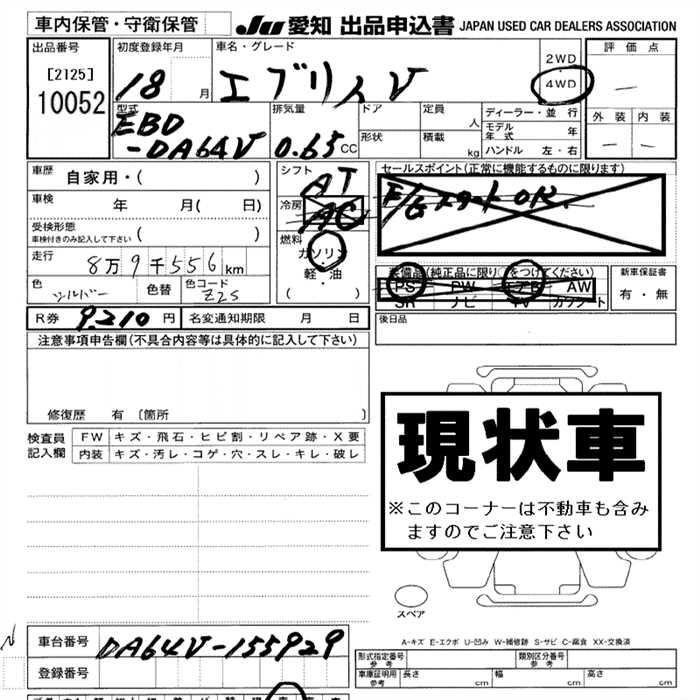 車内保管・守衛保管
JU 愛知 出品申込書 JAPAN USED CAR DEALERS ASSOCIATION
出品番号
[2125]
10052
初度登録年月
18 月
車名・グレード
エブリィV
2WD
4WD
評価点
外装 内装
型式
EBD
-DA64V
排気量
0.65 CC
ドア
形状
定員
人
積載
kg
ディーラー・並行
モデル年式 年
ハンドル 左・右
車歴
自家用・( )
車検
年 月( 日)
受検形態
車検付きのみ記入して下さい ( )
走行
8万9千556km
色
シルバー
色替
色コード
Z2S
シフト
AT
冷房
AC
燃料
ガソリン
軽・油
( ・ )
セールスポイント(正常に機能するものに限ります)
F/Gスタート OK.
装備品(純正品に限り○をつけてください)
PS PW エアB AW
SR ナビ TV カワシート
新車保証書
有・無
R券 9.210 円
名変通知期限 月 日
後日品
注意事項申告欄(不具合内容等は具体的に記入して下さい)
修復歴 有 〔箇所 〕
検査員
記入欄
FW キズ・飛石・ヒビ割・リペア跡・X要
内装 キズ・汚レ・コゲ・穴・スレ・キレ・破レ
現状車
※このコーナーは不動車も含みますのでご注意下さい
スペア
A-キズ E-エクボ U-凹み W-補修跡 S-サビ C-腐食 XX-交換済
車台番号
DA64V-155929
登録番号
形式指定番号
参考
類別区分番号
参考
車庫証明用
参考
長さ cm
幅 cm
高さ cm